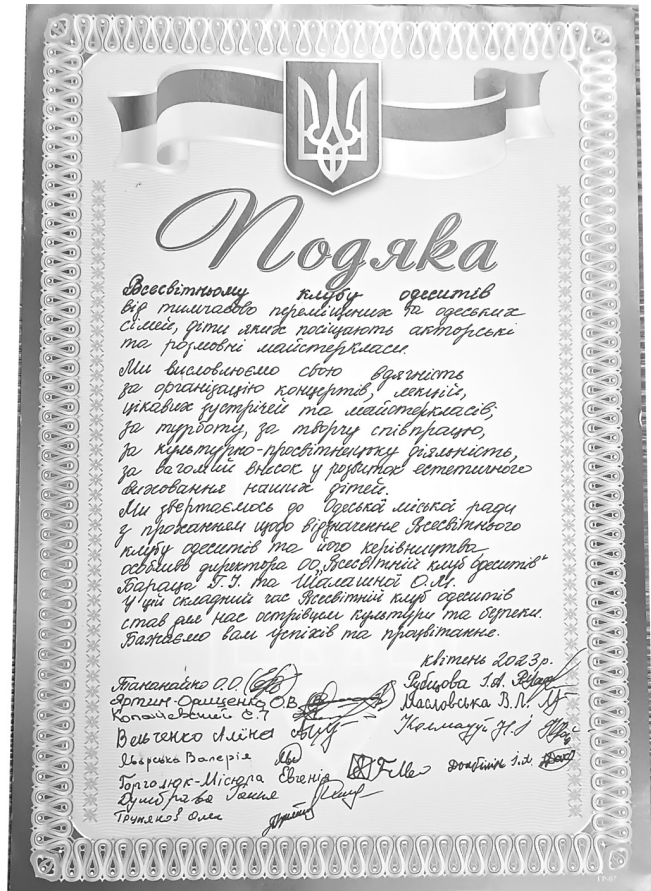 Подяка
Всесвітньому клубу одеситів
від тимчасово переміщених та одеських
сімей, діти яких посіщають акторські
та розмовні майстеркласи.
Ми висловлюємо свою вдячність
за організацію концертів, лекцій,
цікавих зустрічей та майстеркласів;
за турботу, за творчу співпрацю,
за культурно-просвітницьку діяльність,
за вагомий внесок у розвиток естетичного
виховання наших дітей.
Ми звертаємось до Одеської міської ради
з проханням щодо відзначення Всесвітнього
клубу одеситів та його керівництва,
особливо директора ОО „Всесвітній клуб одеситів“
Бараца Г.І. та Шалашної О.М.
У цій складний час Всесвітній клуб одеситів
став для нас острівцем культури та безпеки.
Бажаємо вам успіхів та процвітання.
квітень 2023 р.
Тананайко О.О. Рубцова І.А.
О.В. Масловська В.П.
Вельченко Аліна
Валерія
Горголюк-Місюра Евгенія
Думбрава
Труняков Олег